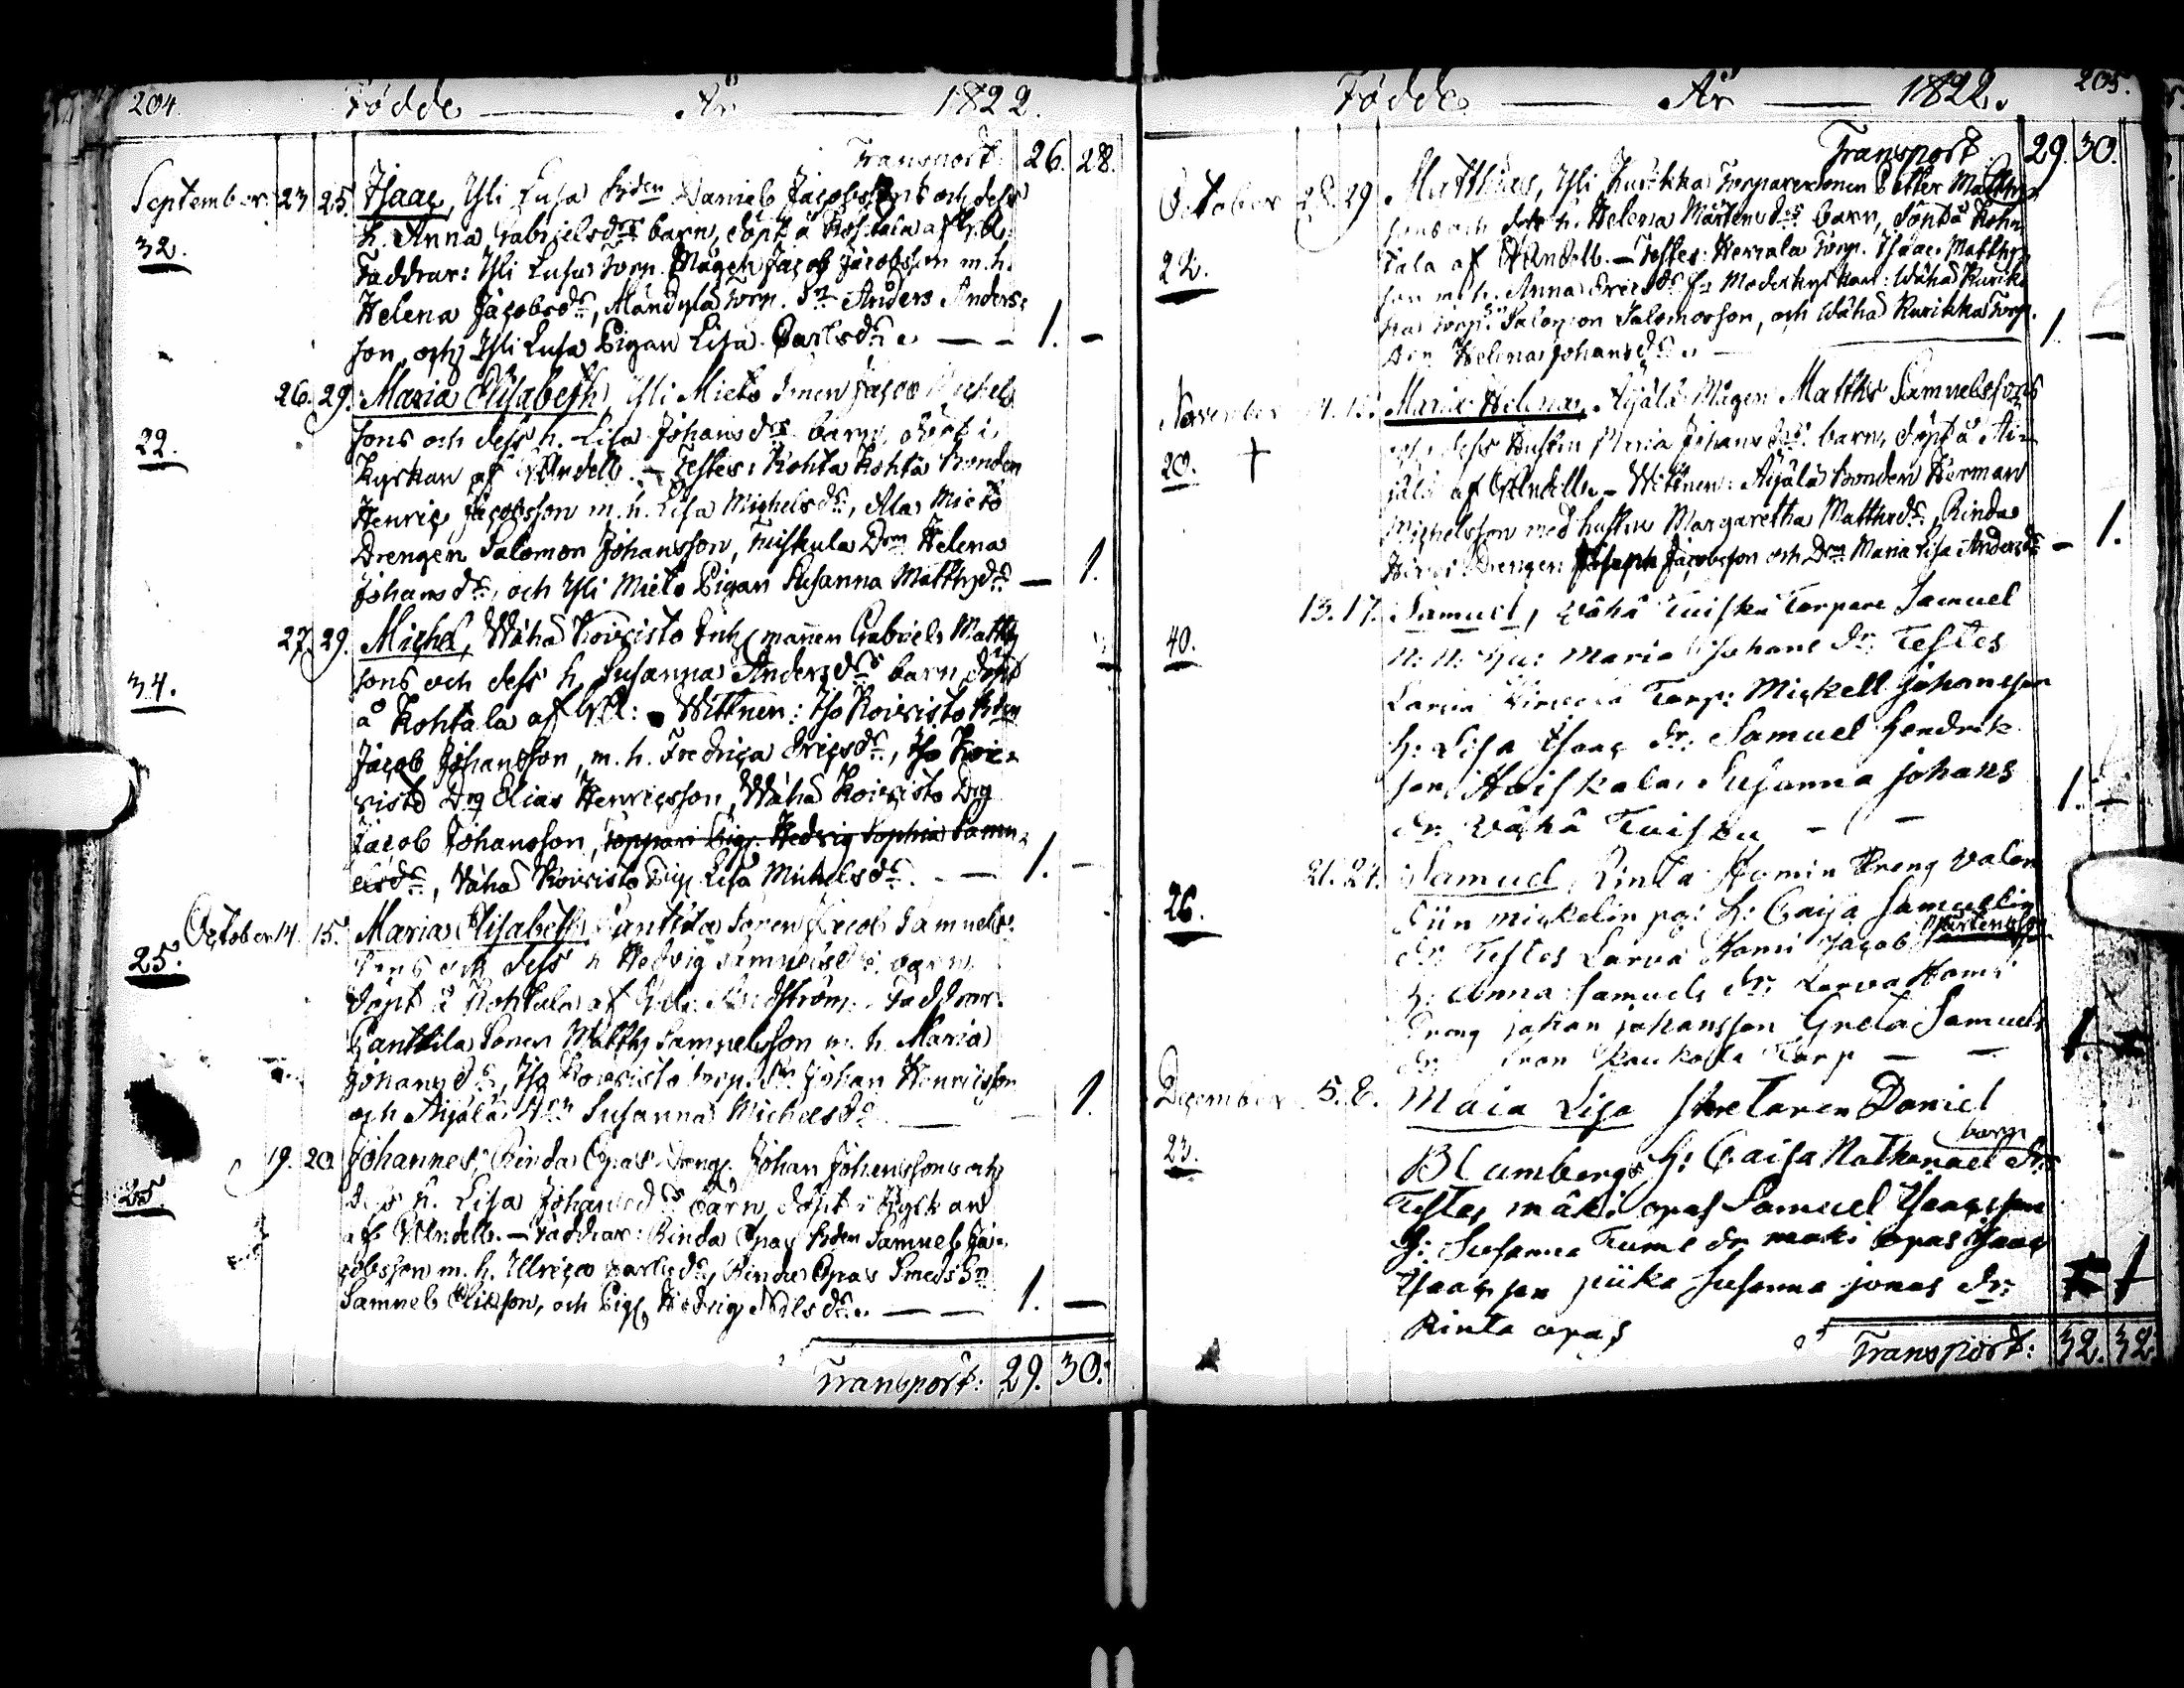 204. Födde År 1822.
Transport: 26. 28.
September. 23 25. Isaac, Yli Lusa Bden Daniels Jacobssons och dess
32. h. Anna Gabrielsdrs barn, döpt å Kohtala af V.A.
Faddrar: Yli Lusa Torp. Mågen Jacob Jacobsson m. h.
Helena Jacobsdr, Mändylä Torp. Sn Anders Anders-
son, och Yli Lusa Pigan Lisa Carlsdr. — — 1. —
26. 29. Maria Elisabeth, Yli Mieto Sonen Jacob Michels
22. sons och dess h. Lisa Johansdrs barn, döpt i
Kyrkan af Andell. — Testes: Kohta Kohta Bonden
Henric Jacobsson m. h. Lisa Michelsdr, Ala Mieto
Drengen Salomon Johansson, Tuiskula Drn Helena
Johansdr, och Yli Mieto Pigan Susanna Matthsdr — 1.
27. 29. Michel, Wähä Koivisto Inhysmannen Gabriels Matths
34. sons och dess h. Susanna Andersdrs barn döpt
å Kohtala af V.A: Wittnen: Iso Koivisto Bden
Jacob Johansson, m. h. Fredrica Ericsdr, Iso Koi-
visto Drg Elias Henricsson, Wähä Koivisto Drg
Jacob Johansson, Toppari Pig. Hedvig Sophia Samu-
elsdr, Wähä Koivisto Pig. Lisa Michelsdr. — — 1. —
October 14. 15. Maria Elisabeth, Panttila Sonen Jacob Samuels-
25. sons och dess h Hedvig Samuelsdrs barn
döpt å Kohtala af Lindström. Faddrar:
Panttila Sonen Matths Samuelsson m. h. Maria
Johansdr, Iso Koivisto Torp. Sn Johan Henricsson
och Äijälä Susanna Michelsdr — 1.
19. 20. Johannes, Rinda Opas Dreng. Johan Johanssons och
25 dess h. Lisa Johansdrs barn, döpt i Kyrkan
af Andell. — Faddrar: Rinda Opas Bden Samuel Ja-
cobsson m. h. Ulrica Carlsdr, Rinda Opas Smeds Sn
Samuel Elisson, och Pig. Hedvig Nilsdr. — — 1. —
Transport: 29. 30.
Födde — År — 1822. 205.
Transport 29. 30.
October 28. 29 Matthias, Yli Kurikka Torparesonen Petter Matths
sons och dess h. Helena Mårtensdrs barn, döpt å Koh-
22. tala af Andell. — Testes: Torp. Isaac Matths
son m. h. Anna Ericsdr Wähä Kurik-
ka Torp. Salomon Salomosson, och Wähä Kurikka Torp.
Helena Johansdr. — 1. —
November 14. Maria Helena, Äijälä Mågen Matths Samuelssons
och dess Hustru Maria Johansdrs barn, döpt å Äi-
20. + jälä af Andell. — Wittnen: Äijälä Bonden Herman
Michelsson med hustru Margaretha Matthsdr, Rinda
Drengen Joseph Jacobsson och Drn Maria Lisa Andersdr — 1.
13. 17. Samuel, Wähä Tuisku Torpare Samuel
40. Hu: Maria Johans dr: Testes
Torp: Mickell Johansson
h: Lisa Isaac dr: Samuel Hendrik
son Huiskala, Susanna Johans
dr: Wähä Tuisku — — 1. —
21. 24. Samuel, Rinta Homin Dreng Valen
26. tiin Mickelin h: Caisa Samuelin
dr: Testes Larva Homi Jacob Mårtensson
h: Anna Samuels dr: Larva Homi
Dreng johan johansson Greta Samuels
dr: Torp — — 1
December 5. 8. Maia Lisa Daniel
23. Blumbergs h: Caisa Nathanael dr: barn
Testes mäki opas Samuel Isaacsson
h: Susanna dr maki opas Isaac
Isaacsson piika Susanna jonas dr: 1
Rinta opas
Transport: 32. 32